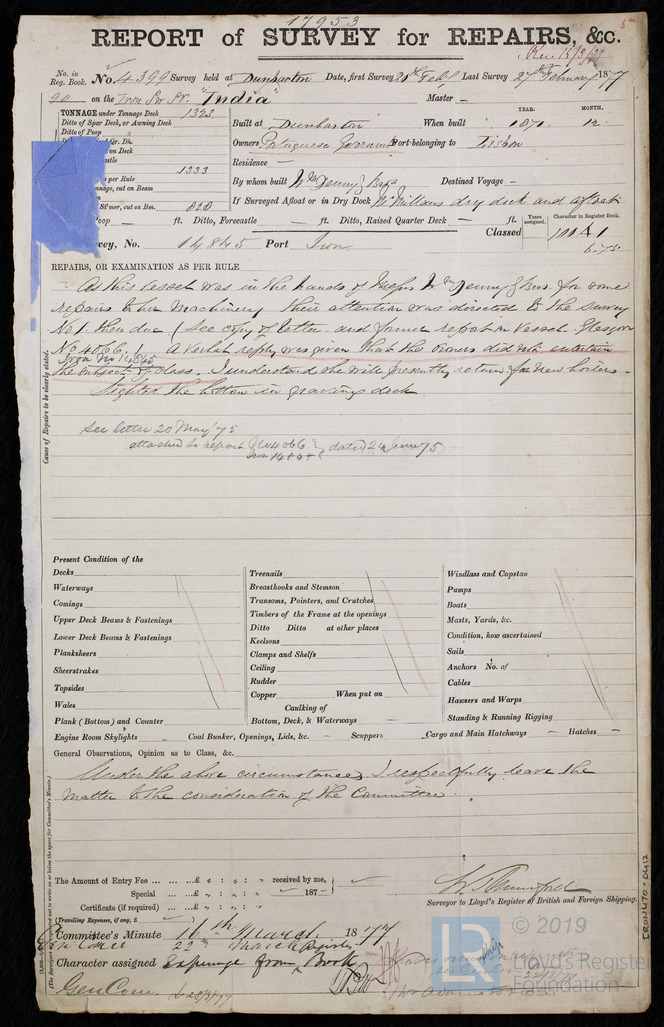 17953
REPORT of SURVEY for REPAIRS, &c.
5
Rec. 15/3/77
No. in Reg. Book. No. 4399 Survey held at Dumbarton Date, first Survey 20th Feby Last Survey 27th February 1877
90 on the Iron Sr Sr. "India" Master —
TONNAGE under Tonnage Deck 1323
Ditto of Spar Deck, or Awning Deck
Ditto of Poop
1333
per Rule
nnage, cut on Beam
St'mer, cut on Bm. 820
YEAR. MONTH.
Built at Dumbarton When built 1871 12
Owners Portuguese Government Port belonging to Lisbon
Residence —
By whom built Wm Denny & Bros Destined Voyage —
If Surveyed Afloat or in Dry Dock McMillans dry dock and afloat
Poop — ft. Ditto, Forecastle — ft. Ditto, Raised Quarter Deck — ft.
Classed
Years assigned. Character in Register Book.
100 A 1
6.75
vey, No. 14845 Port Iron
REPAIRS, OR EXAMINATION AS PER RULE
As this vessel was in the hands of Messrs Wm Denny & Bros. for some
repairs to her Machinery their attention was directed to the survey
No 1 then due (See copy of letter and former report on vessel Glasgow
No 4066. A verbal reply was given that the owners did not entertain
Iron No 14845
the subject of class. I understand she will presently return for new boilers.
Sighted the bottom in graving dock
Cause of Repairs to be clearly stated.
See letter 20 May '75
attached to report No 4066
Iron 14845 dated 24 June 75
Present Condition of the
Decks
Waterways
Comings
Upper Deck Beams & Fastenings
Lower Deck Beams & Fastenings
Planksheers
Sheerstrakes
Topsides
Wales
Plank (Bottom) and Counter
Treenails
Breasthooks and Stemson
Transoms, Pointers, and Crutches
Timbers of the Frame at the openings
Ditto Ditto at other places
Keelsons
Clamps and Shelfs
Ceiling
Rudder
Copper When put on
Caulking of
Bottom, Deck, & Waterways
Windlass and Capstan
Pumps
Boats
Masts, Yards, &c.
Condition, how ascertained
Sails
Anchors No. of
Cables
Hawsers and Warps
Standing & Running Rigging
Engine Room Skylights — Coal Bunker, Openings, Lids, &c. — Scuppers Cargo and Main Hatchways — Hatches —
General Observations, Opinion as to Class, &c.
Under the above circumstances I respectfully leave the
matter to the consideration of the Committee.
The Amount of Entry Fee ... ... £ " : " : " received by me,
Special ... ... £ " : " : " — 187 —
Certificate (if required) ... £ " : " : "
(Travelling Expenses, if any, £
Surveyor to Lloyd's Register of British and Foreign Shipping.
Committee's Minute 16th March 1877
22 " March
Character assigned Expunge from Register Book
IRON470-0412
© 2019
LR
Lloyd's Register
Foundation